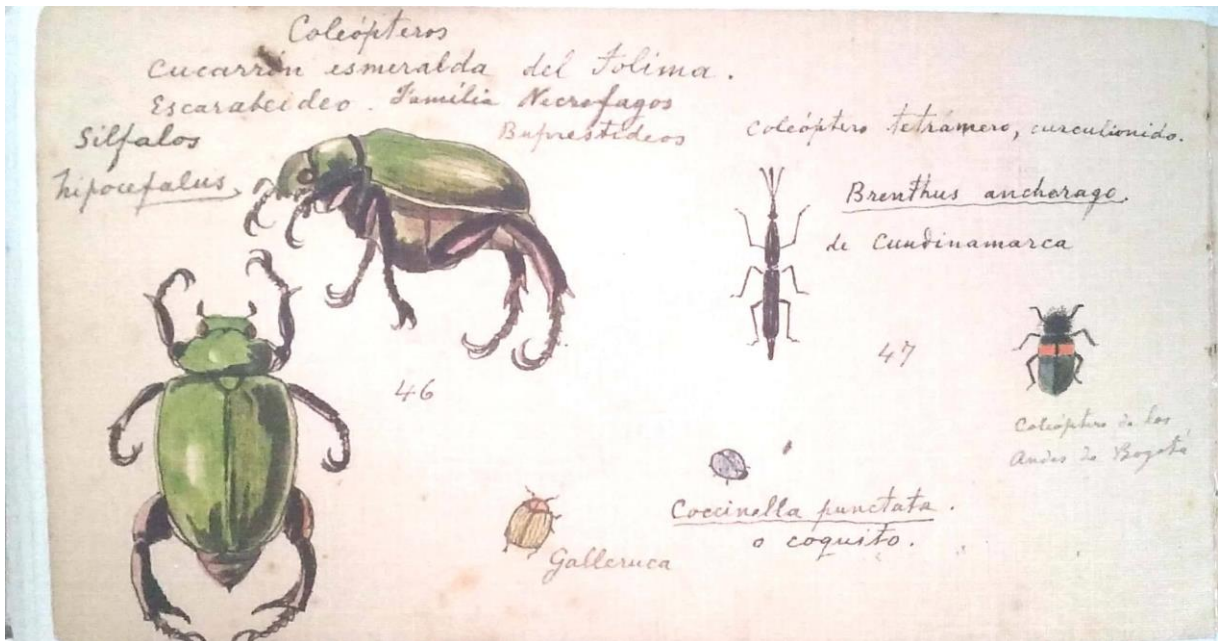 Coleópteros
Cucarrón esmeralda del Tolima.
Escarabeideo. Família Necrofagos
Buprestideos
Silfalos
hipocefalus.
Coleóptero tetrámero, curculionido.
Brenthus anchorago.
de Cundinamarca
46
47
Coleóptero de los
Andes de Bogotá
Coccinella punctata.
o coquito.
Galleruca